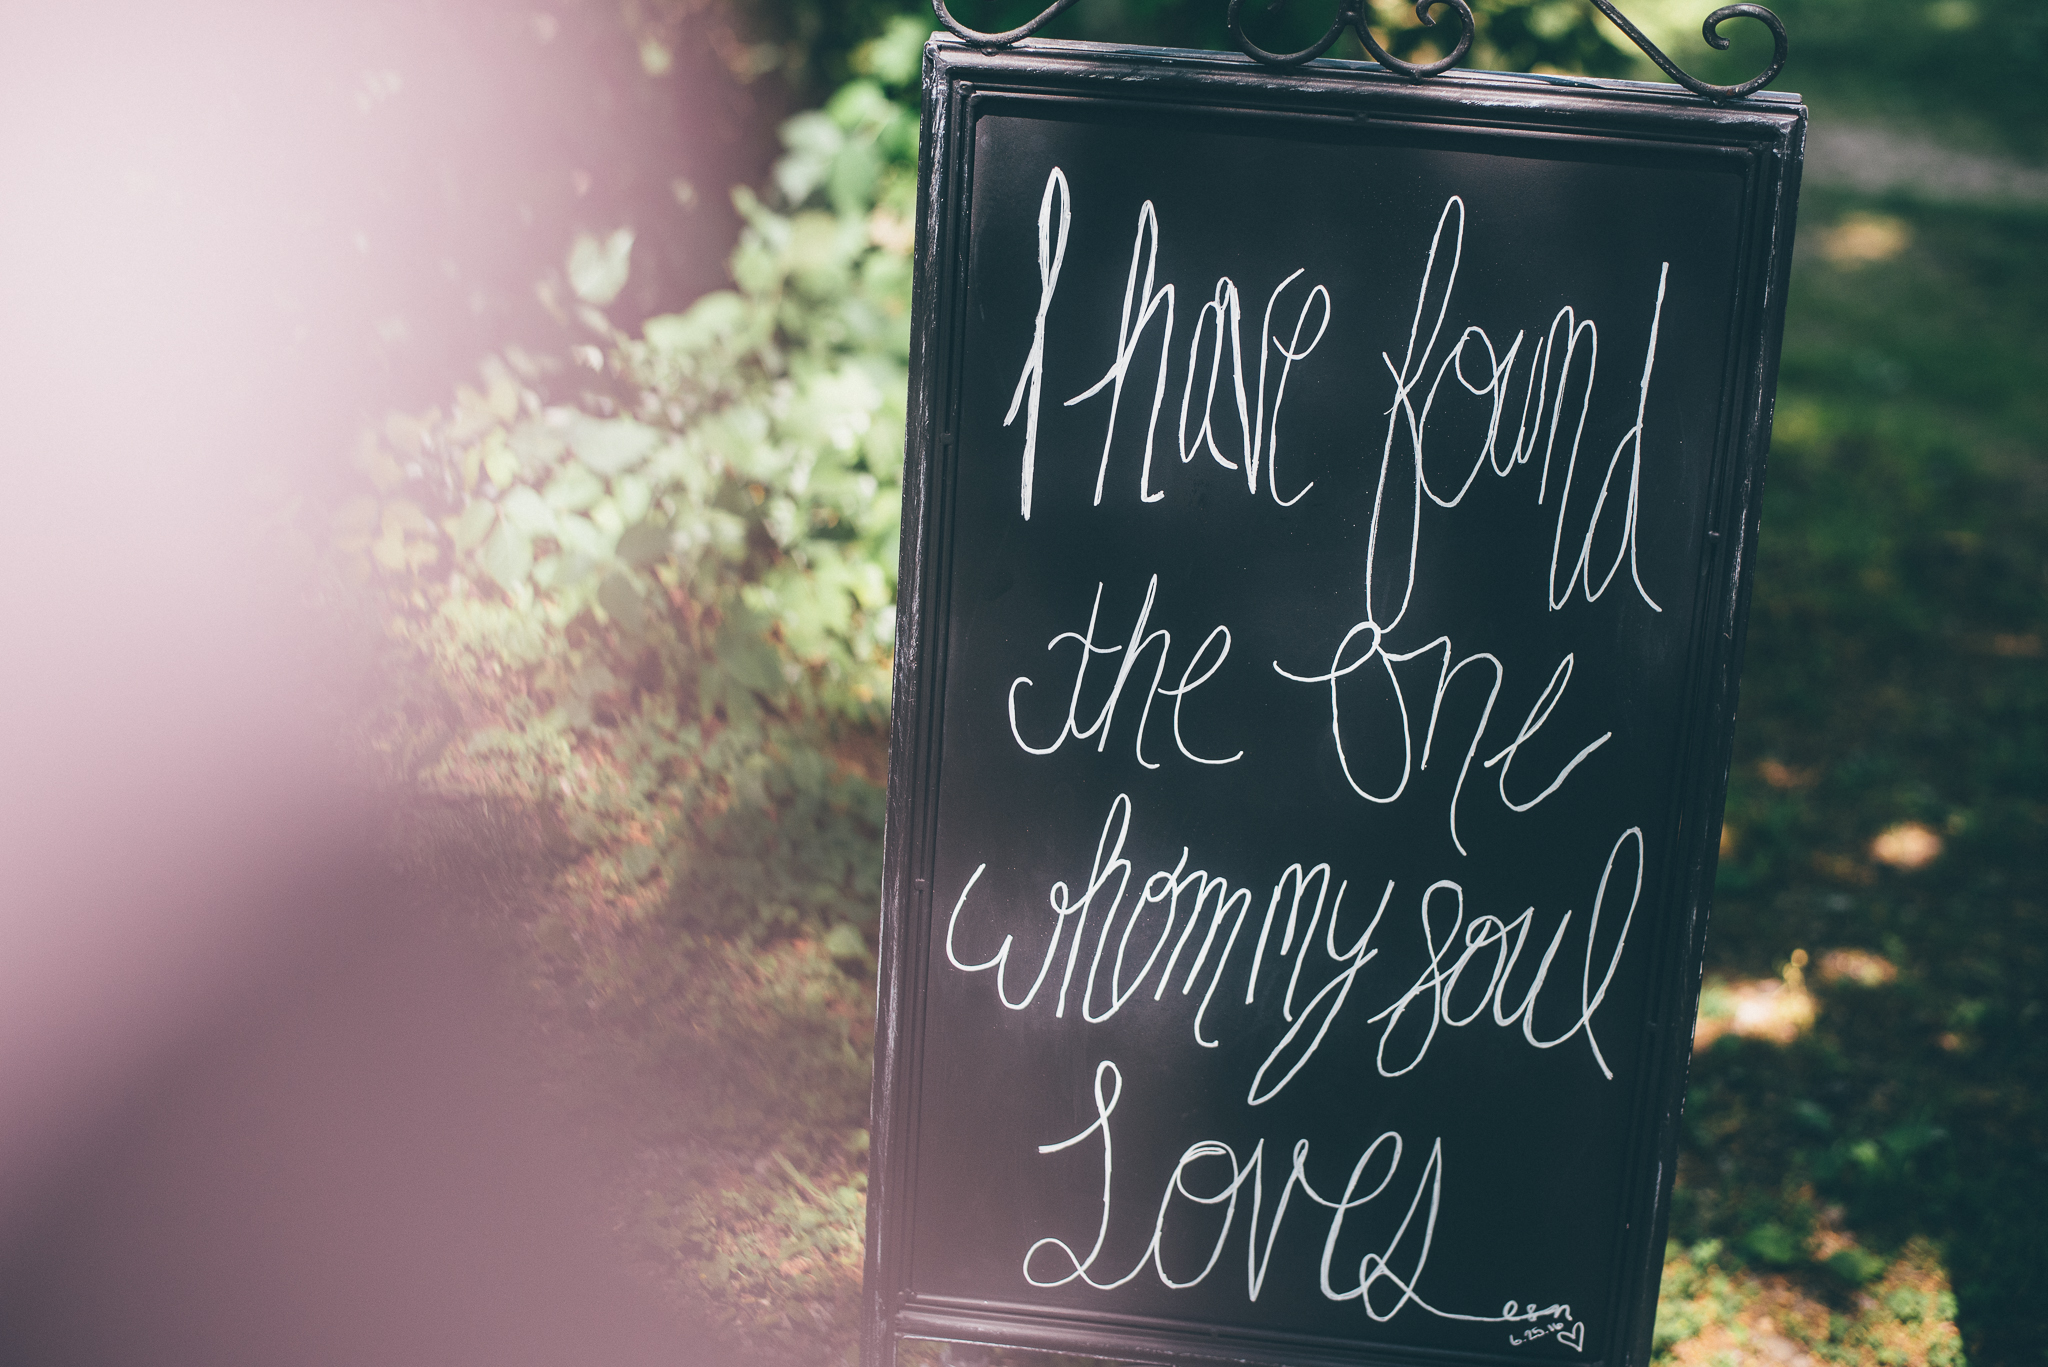 I have found
the one
whom my soul
Loves
esn
6.25.16